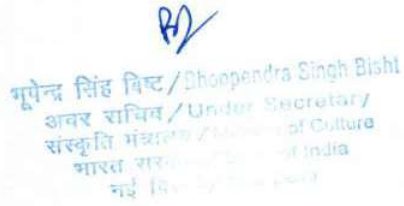 भूपेन्द्र सिंह बिष्ट / Bhoopendra Singh Bisht
अवर सचिव / Under Secretary
संस्कृति मंत्रालय / of Culture
भारत of India
नई